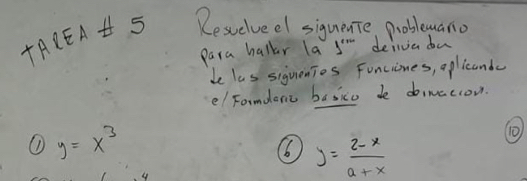 TAREA # 5
Resuelve el siguiente problemario
para hallar la 1era derivada
de las siguientes funciones, aplicando
el Formulario básico de derivacion.
① y = x³
⑥ y = 2-x / a+x
⑩